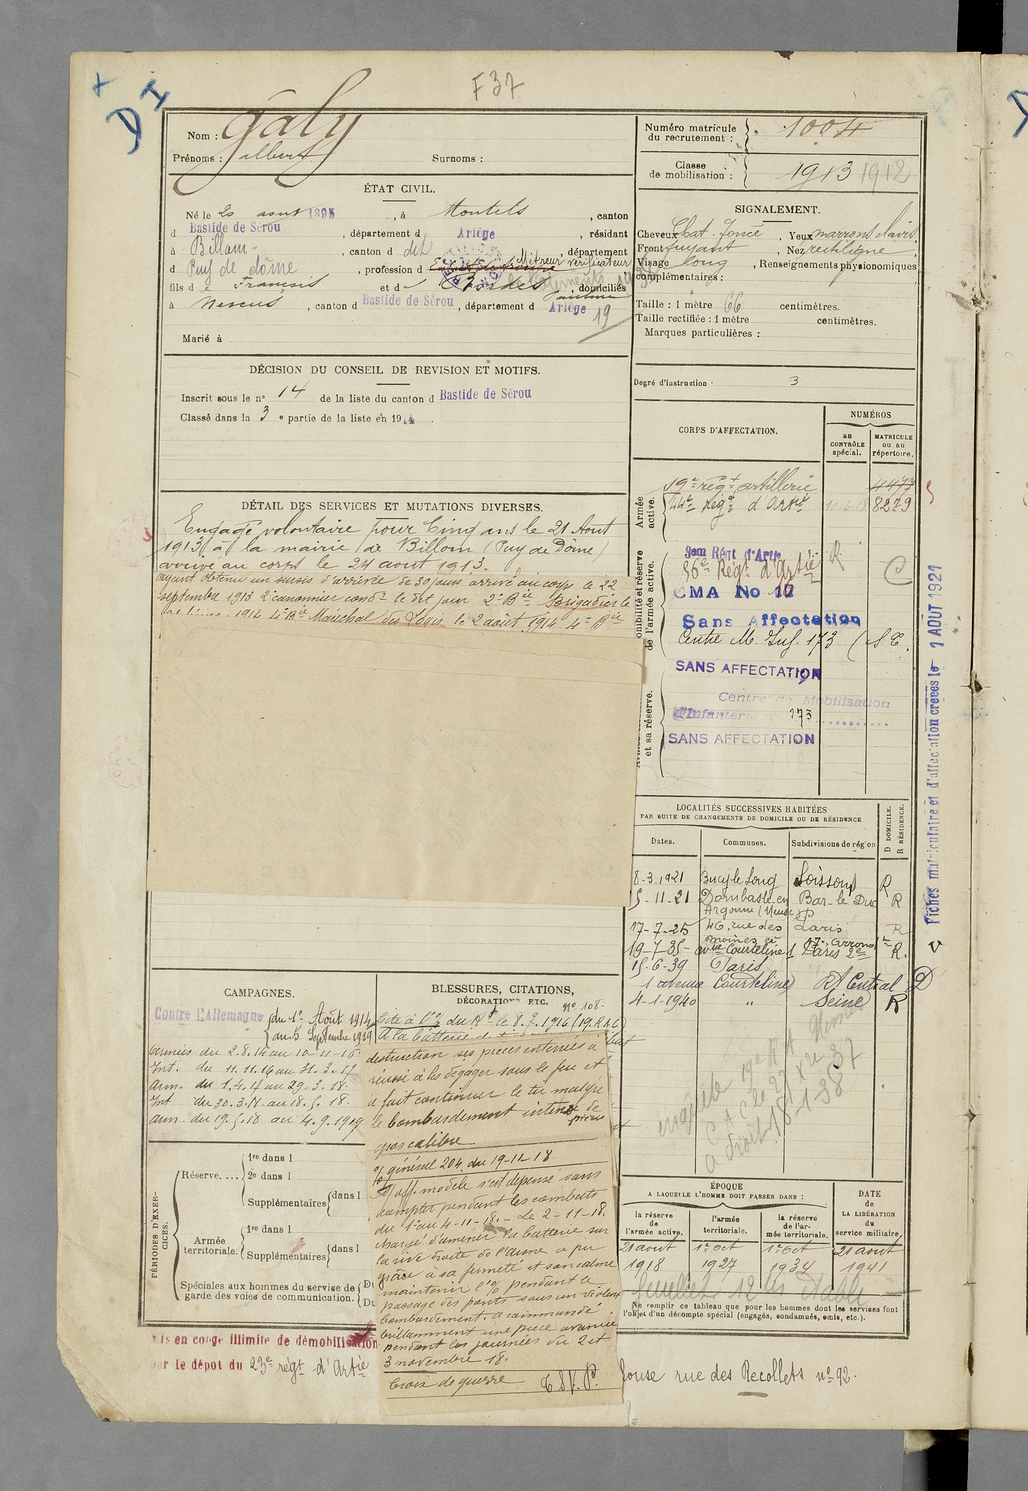 F37
DI
Nom : Galy
Prénoms : Albert Surnoms :
Numéro matricule du recrutement : 1004
Classe de mobilisation : 1913 1912
ÉTAT CIVIL.
Né le 20 aout 1893, à Montels, canton
d Bastide de Sérou, département d Ariège, résidant
à Billom, canton d dit, département
d Puy de dôme, profession d Métreur vérificateur
fils d François et d , domiciliés
à Nescus, canton d Bastide de Sérou, département d Ariège
19
Marié à
SIGNALEMENT.
Cheveux Chat. foncé, Yeux marrons clairs
Front fuyant, Nez rectiligne
Visage long, Renseignements physionomiques
complémentaires :
Taille : 1 mètre 66 centimètres.
Taille rectifiée : 1 mètre centimètres.
Marques particulières :
Degré d'instruction : 3
DÉCISION DU CONSEIL DE REVISION ET MOTIFS.
Inscrit sous le n° 14 de la liste du canton d Bastide de Sérou
Classé dans la 3 e partie de la liste en 1914
CORPS D'AFFECTATION.
NUMÉROS
au CONTRÔLE spécial.
MATRICULE ou au répertoire.
Armée active.
19e régt artillerie 4473
44e Régt d'Artie 8229
3em Régt d'Artie R
36e Régt d'Artie
CMA No 17
Sans Affectation
Centre M. Inf. 173 (S.E.
SANS AFFECTATION
Centre de Mobilisation
d'Infanterie n° 173
SANS AFFECTATION
et sa réserve.
Fiches matriculaire et d'affectation créées le 1 AOUT 1921
DÉTAIL DES SERVICES ET MUTATIONS DIVERSES.
Engagé volontaire pour Cinq ans le 21 Aout
1913 à la mairie de Billom (Puy de Dôme)
arrivé au corps le 24 aout 1913.
ayant obtenu un sursis d'arrivée de 30 jours arrivé au corps le 22
septembre 1913 2e canonnier condr le dit jour 2e Bie Brigadier le
1914 4e Bie Maréchal des Logis le 2 août 1914 4e Bie
LOCALITÉS SUCCESSIVES HABITÉES
PAR SUITE DE CHANGEMENTS DE DOMICILE OU DE RÉSIDENCE
D DOMICILE.
R RÉSIDENCE.
Dates. Communes. Subdivisions de région
8-3-1921 Bucy le Long Soissons R
15-11-21 Dombasle en Argonne (Meuse) Bar-le Duc R
17-7-25 46, rue des moines Paris R
19-7-35 1 avenue Courteline Paris R.
15-6-39 Paris
1 avenue Courteline Central D
4-1-1940 " Seine R
CAMPAGNES.
Contre l'Allemagne du 2 Août 1914
au 5 Septembre 1919
Armées du 2.8.14 au 10-11-16
Int. du 11.11.16 au 31.3.17
Arm. du 1.4.17 au 29.3.18.
Int du 30.3.18 au 18.5.18.
Arm. du 19.5.18 au 4.9.1919
BLESSURES, CITATIONS,
DÉCORATIONS ETC.
n° 108.
Cité à l'o/ du Rt le 8.7.1916 (19 R.A.C)
destruction ses pièces enterrées a
réussi à les dégager sous le feu et
a fait continuer le tir malgré
le bombardement intense de pièces
gros calibre
o/ général 204 du 19-11-18
S/off. modèle s'est dépensé sans
compter pendant les combats
du 1er au 4-11-18. - Le 2-11-18.
chargé d'amener la batterie sur
la rive droite de l'Aisne a pu
grâce à sa fermeté et son calme
maintenir l'o/ pendant le
passage des ponts sous un violent
bombardement. a commandé
brillamment une pièce avancée
pendant les journées du 2 et
3 novembre 18.
Croix de guerre
PÉRIODES D'EXERCICES.
Réserve....
1re dans l
2e dans l
Supplémentaires dans l
Armée territoriale.
1re dans l
Supplémentaires dans l
Spéciales aux hommes du service de garde des voies de communication.
ÉPOQUE
A LAQUELLE L'HOMME DOIT PASSER DANS :
la réserve de l'armée active.
l'armée territoriale.
la réserve de l'armée territoriale.
DATE de LA LIBÉRATION du service militaire.
21 aout 1918
1er oct 1927
1er oct 1934
21 aout 1941
Ne remplir ce tableau que pour les hommes dont les services font
l'objet d'un décompte spécial (engagés, condamnés, omis, etc.).
Mis en congé illimité de démobilisation
par le dépot du 23e régt d'Artie
louse rue des Recollets n° 92.